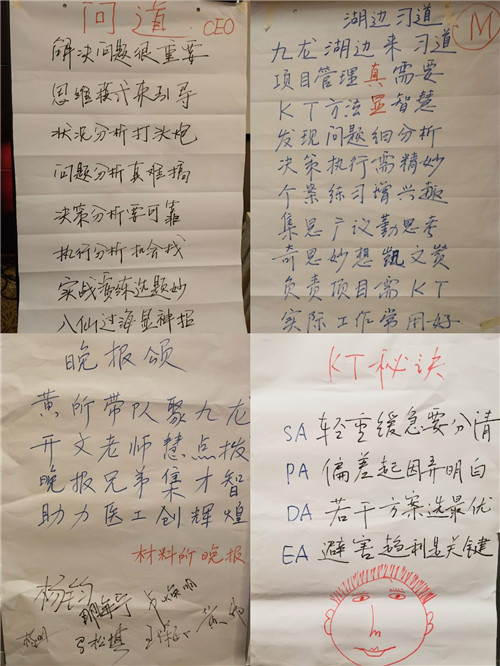 问道
CEO
解决问题很重要
思维模式来引导
状况分析打头炮
问题分析真难搞
决策分析要可靠
执行分析拍合成
实战演练选题妙
八仙过海显神招
湖边习道
M
九龙湖边来习道
项目管理真需要
KT方法显智慧
发现问题细分析
决策执行需精妙
个案练习增兴趣
集思广议勤思考
奇思妙想凯文赏
负责项目需KT
实际工作常用好
晚报颂
黄所带队聚九龙
开文老师慧点拨
晚报兄弟集才智
助力医工创辉煌
材料所晚报
杨钧
KT秘诀
SA 轻重缓急要分清
PA 偏差起因弄明白
DA 若干方案选最优
EA 避害趋利是关键